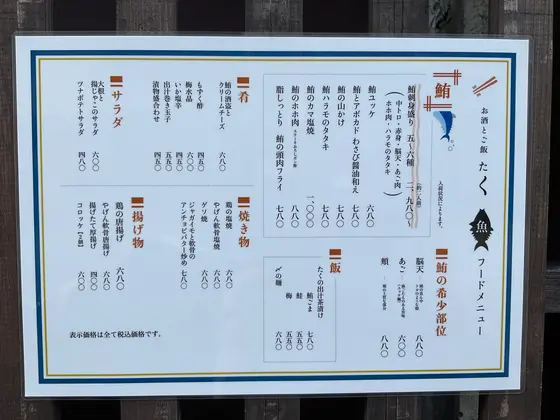 お酒とご飯
たく
魚
フードメニュー
鮪
鮪刺身盛り 五〜六種 二、九八〇〜
(中トロ・赤身・脳天・あご肉
ホホ肉・ハラモのタタキ)
入荷状況によります。
鮪ユッケ 六八〇
鮪とアボカド わさび醤油和え 七八〇
鮪の山かけ 七八〇
鮪ハラモのタタキ 七八〇
鮪のカマ塩焼 一、〇〇〇
鮪のホホ肉 八八〇
脂しっとり 鮪の頭肉フライ 七八〇
鮪の希少部位
脳天 八八〇
あご 六〇〇
頬 八八〇
肴
鮪の酒盗と
クリームチーズ 六八〇
もずく酢 四五〇
梅水晶 六〇〇
いか塩辛 四五〇
出汁巻き玉子 五五〇
漬物盛合わせ 五五〇
サラダ
大根と
揚じゃこのサラダ 六〇〇
ツナポテトサラダ 四八〇
焼き物
鶏の塩焼 六八〇
やげん軟骨塩焼 六八〇
ゲソ焼 六八〇
ジャガイモと軟骨の
アンチョビバター炒め 七八〇
揚げ物
鶏の唐揚げ 六八〇
やげん軟骨唐揚げ 六八〇
揚げたて厚揚げ 四八〇
コロッケ(2個) 六〇〇
飯
たくの出汁茶漬け
鮪ごま 七八〇
鮭 五五〇
梅 五五〇
〆の麺 六八〇
表示価格は全て税込価格です。